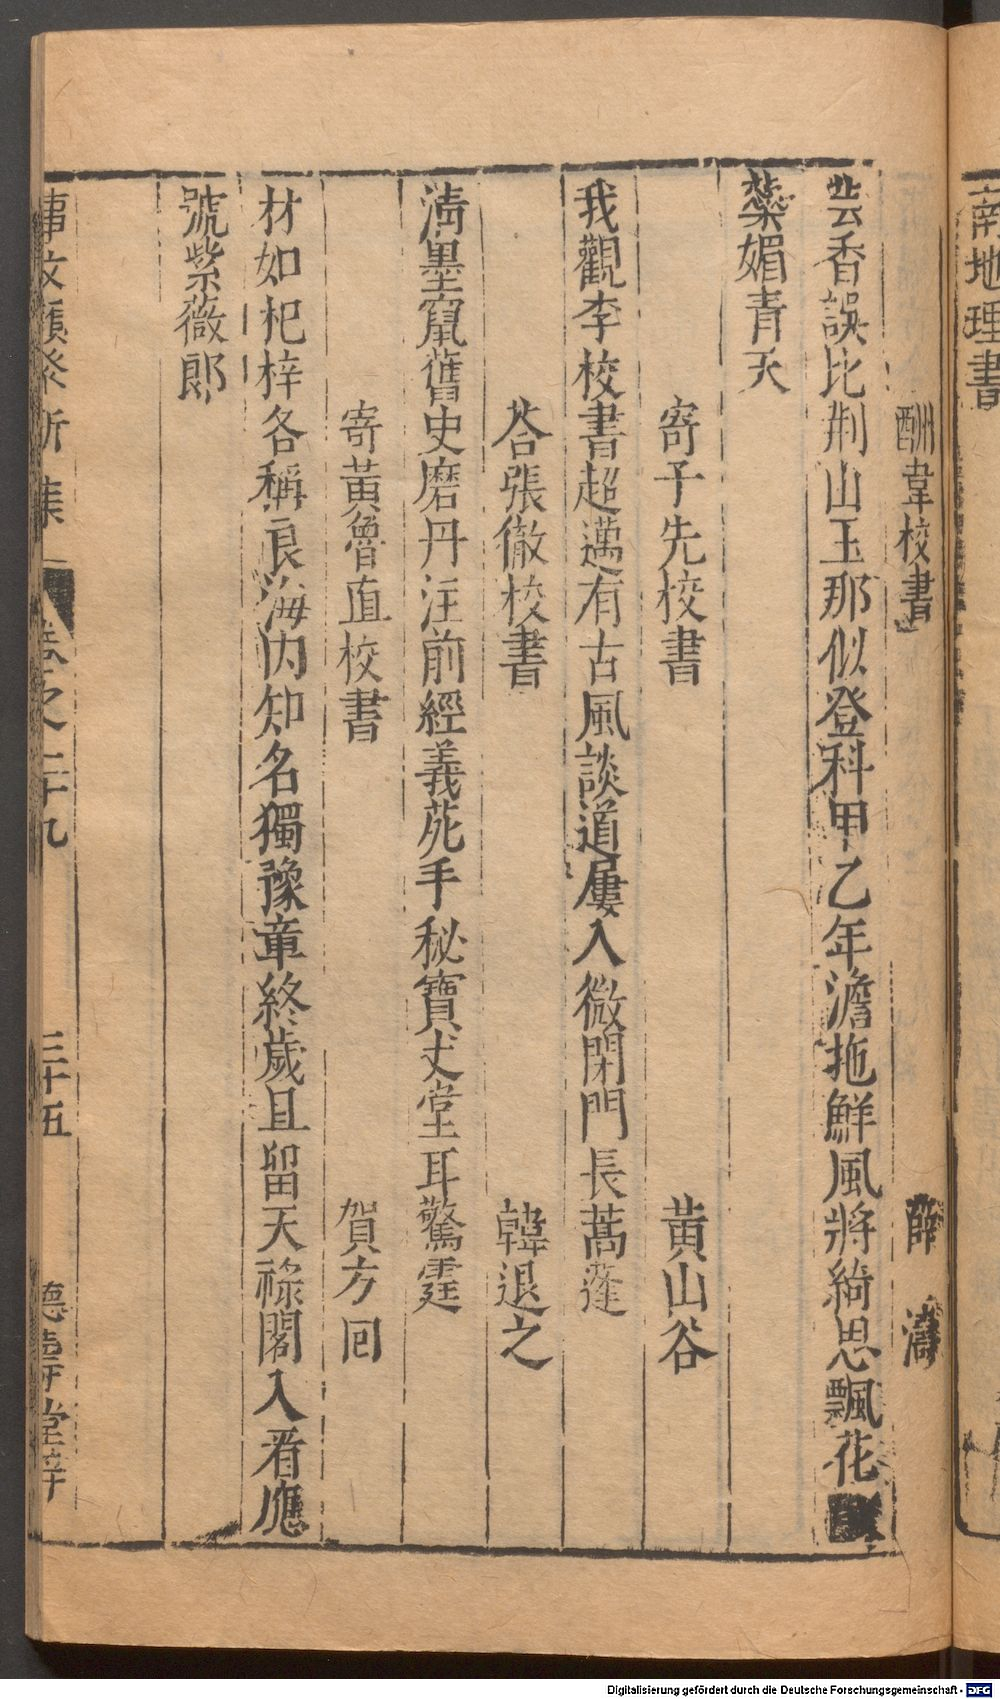 南地理書
酬韋校書　薛濤
芸香誤比荆山玉那似登科甲乙年澹拖鮮風將綺思飄花
蘂媚青天
寄子先校書　黄山谷
我觀李校書超邁有古風談道屢入微閉門長蒿蓬
荅張徹校書　韓退之
淸墨竄舊史磨丹注前經義苑手秘寶文堂耳驚霆
寄黃魯直校書　賀方回
材如杞梓各稱良海内知名獨豫章終歲且留天祿閣入看應
號紫薇郎
事文類聚新集　卷之二十九　三十五　德壽堂梓
Digitalisierung gefördert durch die Deutsche Forschungsgemeinschaft - DFG